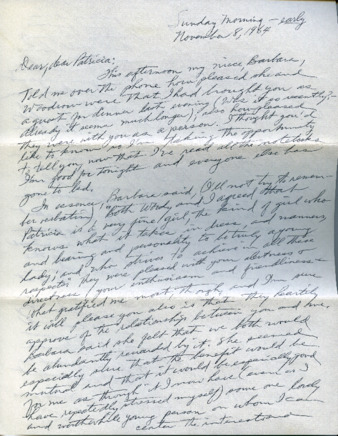 Sunday Morning - early
November 8, 1964
Dear, dear Patricia:
This afternoon my niece Barbara,
told me over the phone how pleased she and
Woodrow were that I had brought you as
a guest for dinner last evening
already it seems much longer), also how pleased
they were with you as a person. I thought you'd
like to know so I'm taking the opportunity
to tell you now that I've read all the notes
I'm good for tonight and everyone else has
gone to bed.
In essence, Barbara said, (I'll not try to remem-
ber verbatim), Both Woody and I agreed that
Patricia is a very fine girl, the kind of girl who
knows what it takes in dress, and manners
and bearing and personality to be truly a young
lady; and who strives to achieve in all these
respects they were pleased with your alertness &
directness, your enthusiasm and friendliness &
what gratified me most though and I'm sure
it will please you also is that they heartily
approve of the relationship between you and me.
Barbara said she felt that we both would
be abundantly rewarded by it. She seemed
especially sure that the benefit would be
mutual and that it would be especially good
for me as though I know (even as I
have repeatedly stressed myself) some one lovely
and worthwhile young person on whom I can
center the interests and